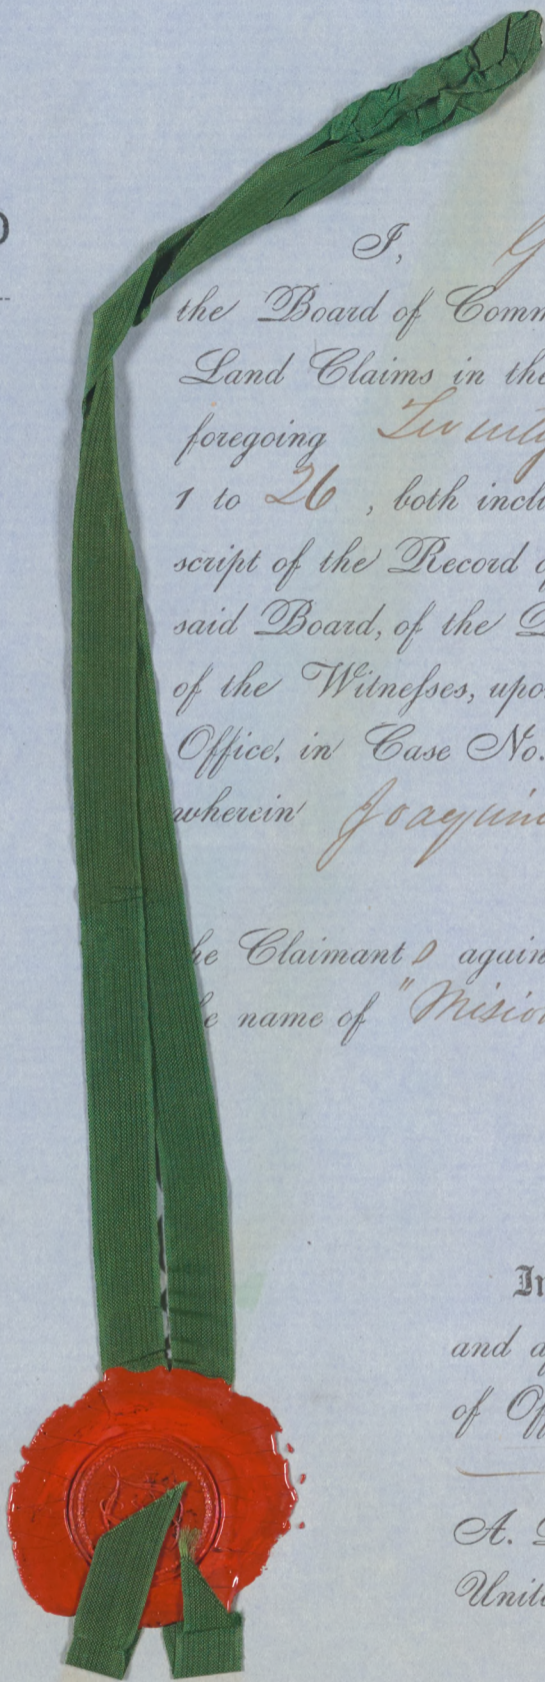 I, G
the Board of Comm
Land Claims in the
foregoing Twenty
1 to 26, both inclu
script of the Record o
said Board, of the D
of the Witnesses, upo
Office, in Case No.
wherein Joaquin
he Claimants again
e name of "Mision
In
and a
of Off
A. D
Unite